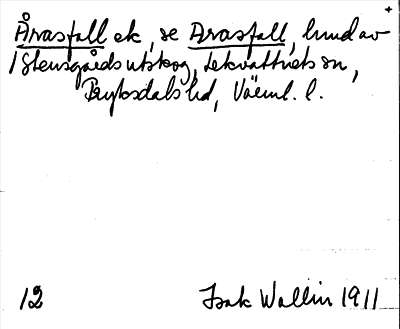 Årasfall ek, se Arasfall, hund av
Stensgårds utskog, Lekvattnets sn,
Fryksdals hd, Värml. l.
12 Isak Wallin 1911